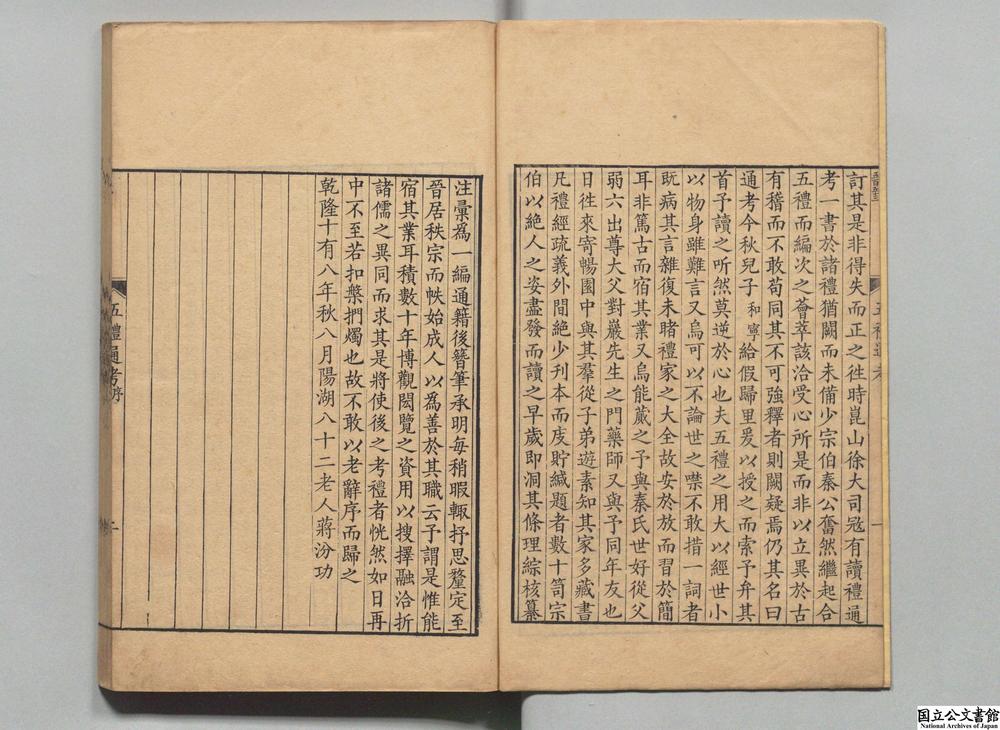 訂其是非得失而正之徃時崑山徐大司寇有讀禮通
考一書於諸禮猶闕而未備少宗伯秦公奮然繼起合
五禮而編次之薈萃該洽受心所是而非以立異於古
有稽而不敢苟同其不可強釋者則闕疑焉仍其名曰
通考今秋兒子和寧給假歸里爰以授之而索予弁其
首予讀之听然莫逆於心也夫五禮之用大以經世小
以物身雖難言又烏可以不論世之噤不敢措一詞者
既病其言雜復未睹禮家之大全故安於放而習於簡
耳非篤古而宿其業又烏能蕆之予與秦氏世好從父
弱六出尊大父對巖先生之門藥師又與予同年友也
日徃來寄暢園中與其羣從子弟遊素知其家多藏書
凡禮經疏義外間絕少刊本而庋貯緘題者數十笥宗
伯以絕人之姿盡發而讀之早歲即洞其條理綜核纂
注彙為一編通籍後簪筆承明每稍暇輙抒思釐定至
晉居秩宗而帙始成人以為善於其職云予謂是惟能
宿其業耳積數十年博觀閎覽之資用以搜擇融洽折
諸儒之異同而求其是將使後之考禮者恍然如日再
中不至若扣槃捫燭也故不敢以老辭序而歸之
乾隆十有八年秋八月陽湖八十二老人蔣汾功
五禮通考
序
二
五禮通考
一
国立公文書館
National Archives of Japan